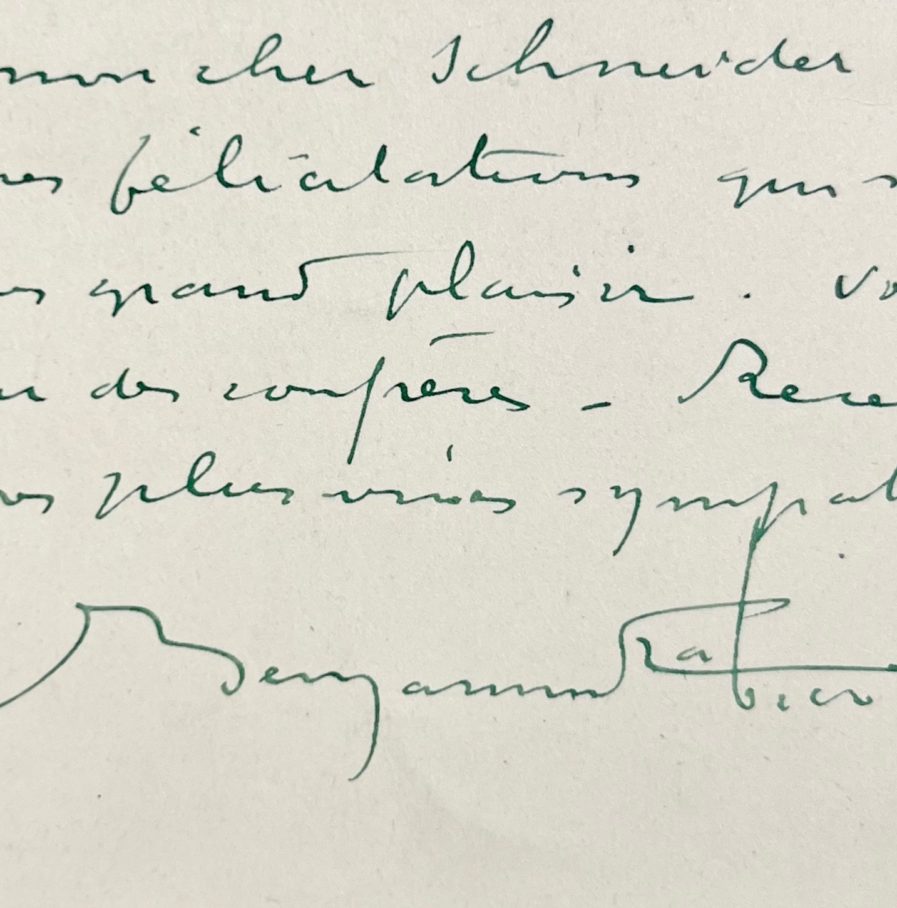 mon cher Schneider
mes félicitations qui
grand plaisir. Vo
des confrères - Rece
vos plus vives sympat
Benjamin Rabier